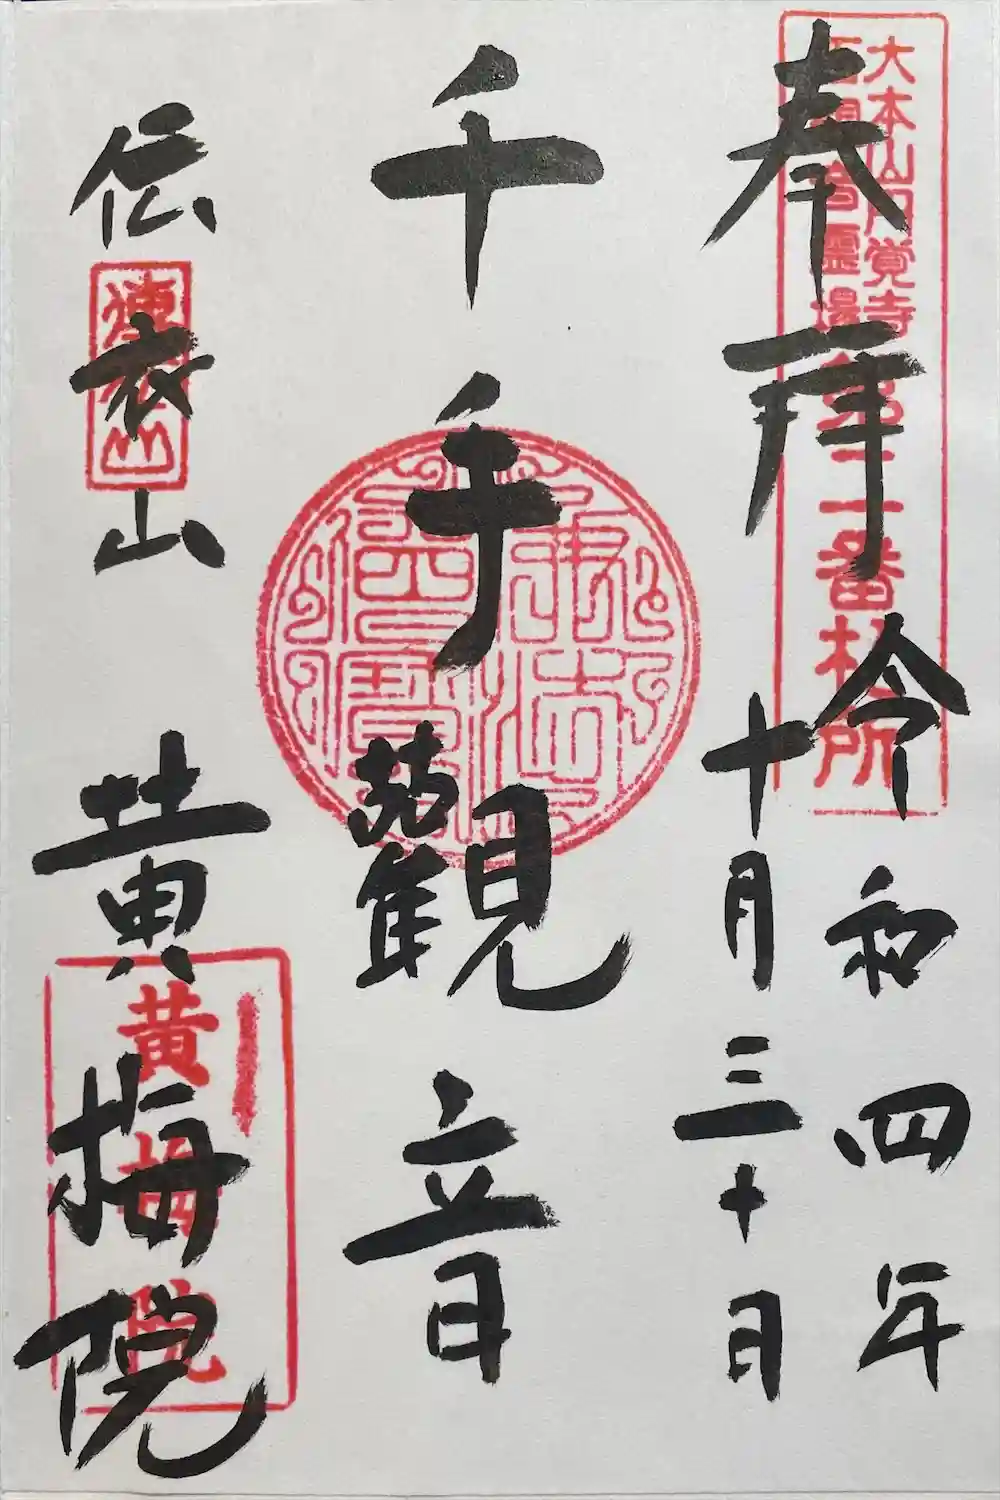 奉拝
令和四年
十月三十日
千手觀音
伝衣山
黄梅院
大本山円覚寺
百観音霊場第二番札所
黄梅院